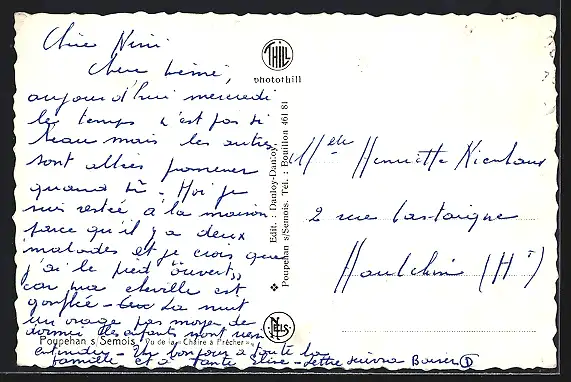 Chère Nini
Cher Aimé,
aujourd'hui mercredi
le temps n'est pas si
beau mais les autres
sont allés promener
quand même - Moi je
suis restée à la maison
parce qu'il y a deux
malades et je crois que
j'ai le pied "ouvert"
car ma cheville est
gonflée - La nuit
un orage pas moyen de
dormir les enfants n'ont rien
entendu - Un bonjour à toute la
famille et à Tante - Lettre suivra Baiser D
THILL
photothill
Edit. : Danloy-Danloy,
Poupehan s/Semois. Tél. : Rouillon 461 81
NELS
Poupehan s/Semois Vu de la « Chaire à Prêcher »
Melle Henriette
2 rue Castaigne
Haulchin (Ht)